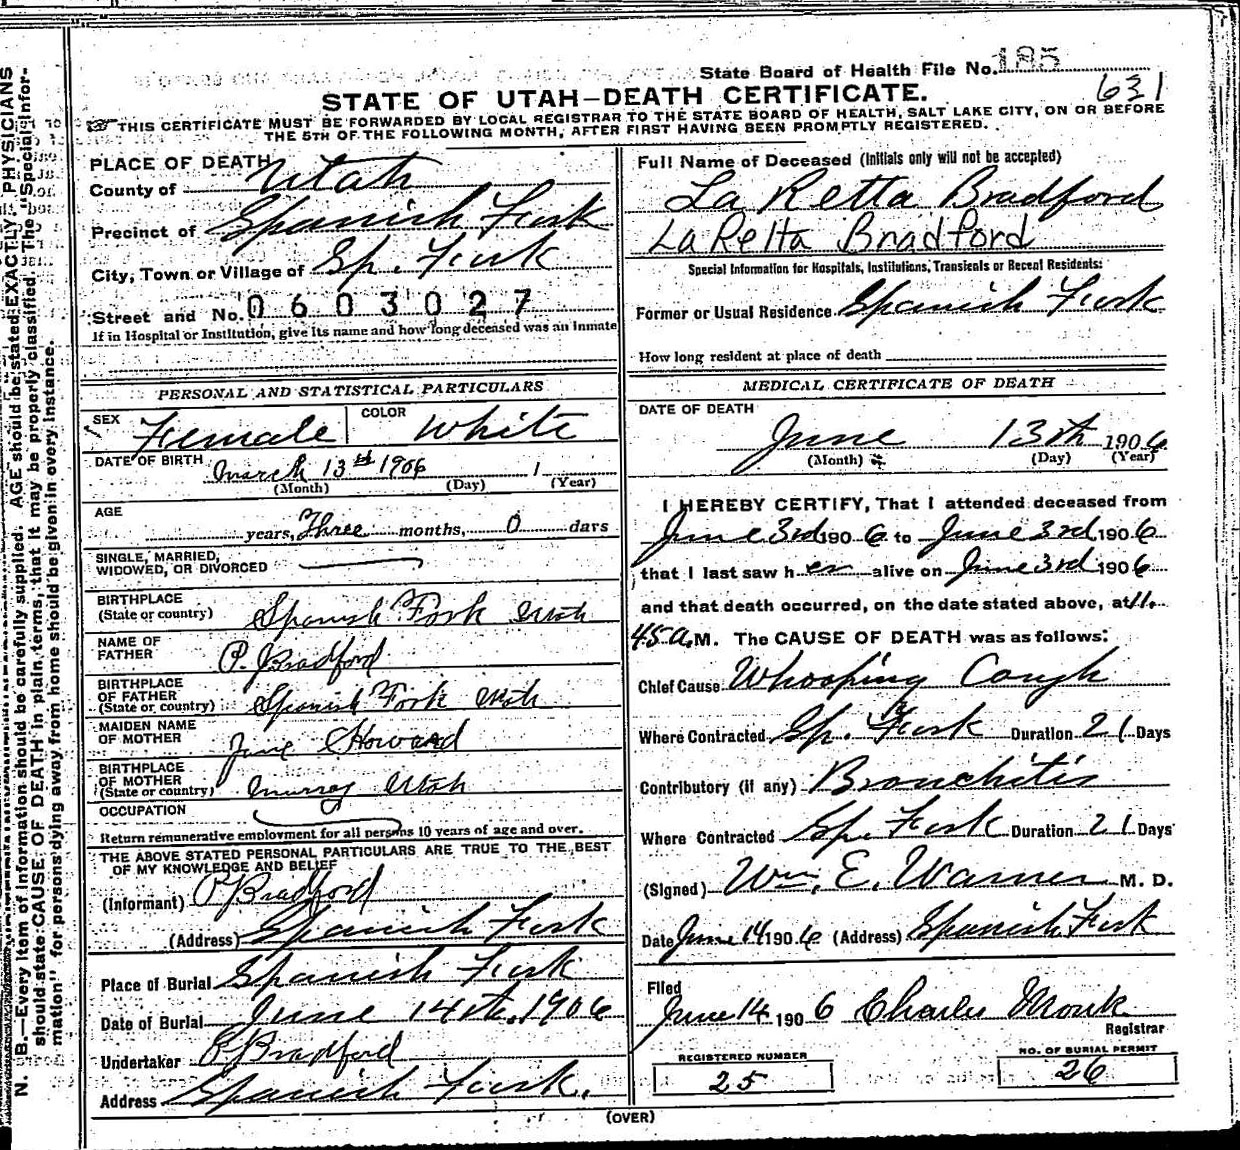 State Board of Health File No. 185
631
STATE OF UTAH—DEATH CERTIFICATE.
THIS CERTIFICATE MUST BE FORWARDED BY LOCAL REGISTRAR TO THE STATE BOARD OF HEALTH, SALT LAKE CITY, ON OR BEFORE
THE 5TH OF THE FOLLOWING MONTH, AFTER FIRST HAVING BEEN PROMPTLY REGISTERED.
PLACE OF DEATH
County of Utah
Precinct of Spanish Fork
City, Town or Village of Sp. Fork
Street and No. 0603027
If in Hospital or Institution, give its name and how long deceased was an Inmate
PERSONAL AND STATISTICAL PARTICULARS
SEX Female COLOR White
DATE OF BIRTH March 13th 1906 1
(Month) (Day) (Year)
AGE
years, Three months, 0 days
SINGLE, MARRIED,
WIDOWED, OR DIVORCED
BIRTHPLACE
(State or country) Spanish Fork Utah
NAME OF
FATHER P. J Bradford
BIRTHPLACE
OF FATHER
(State or country) Spanish Fork Utah
MAIDEN NAME
OF MOTHER Jane Howard
BIRTHPLACE
OF MOTHER
(State or country) Murray Utah
OCCUPATION
Return remunerative employment for all persons 10 years of age and over.
THE ABOVE STATED PERSONAL PARTICULARS ARE TRUE TO THE BEST
OF MY KNOWLEDGE AND BELIEF
(Informant) P J Bradford
(Address) Spanish Fork
Place of Burial Spanish Fork
Date of Burial June 14th, 1906
Undertaker P J Bradford
Address Spanish Fork.
Full Name of Deceased (Initials only will not be accepted)
La Retta Bradford
LaRetta Bradford
Special Information for Hospitals, Institutions, Transients or Recent Residents:
Former or Usual Residence Spanish Fork
How long resident at place of death
MEDICAL CERTIFICATE OF DEATH
DATE OF DEATH
June 13th 1906
(Month) (Day) (Year)
I HEREBY CERTIFY, That I attended deceased from
June 3rd 1906 to June 3rd 1906
that I last saw her alive on June 3rd 1906
and that death occurred, on the date stated above, at 11.
45 a. M. The CAUSE OF DEATH was as follows:
Chief Cause Whooping Cough
Where Contracted Sp. Fork Duration 21 Days
Contributory (if any) Bronchitis
Where Contracted Sp. Fork Duration 21 Days
(Signed) Wm. E. Warner M. D.
Date June 14 1906 (Address) Spanish Fork
Filed
June 14 1906 Charles Monk
Registrar
REGISTERED NUMBER
25
NO. OF BURIAL PERMIT
26
(OVER)
N. B.—Every item of information should be carefully supplied. AGE should be stated EXACTLY. PHYSICIANS
should state CAUSE OF DEATH in plain terms, that it may be properly classified. The "Special Infor-
mation" for persons dying away from home should be given in every instance.